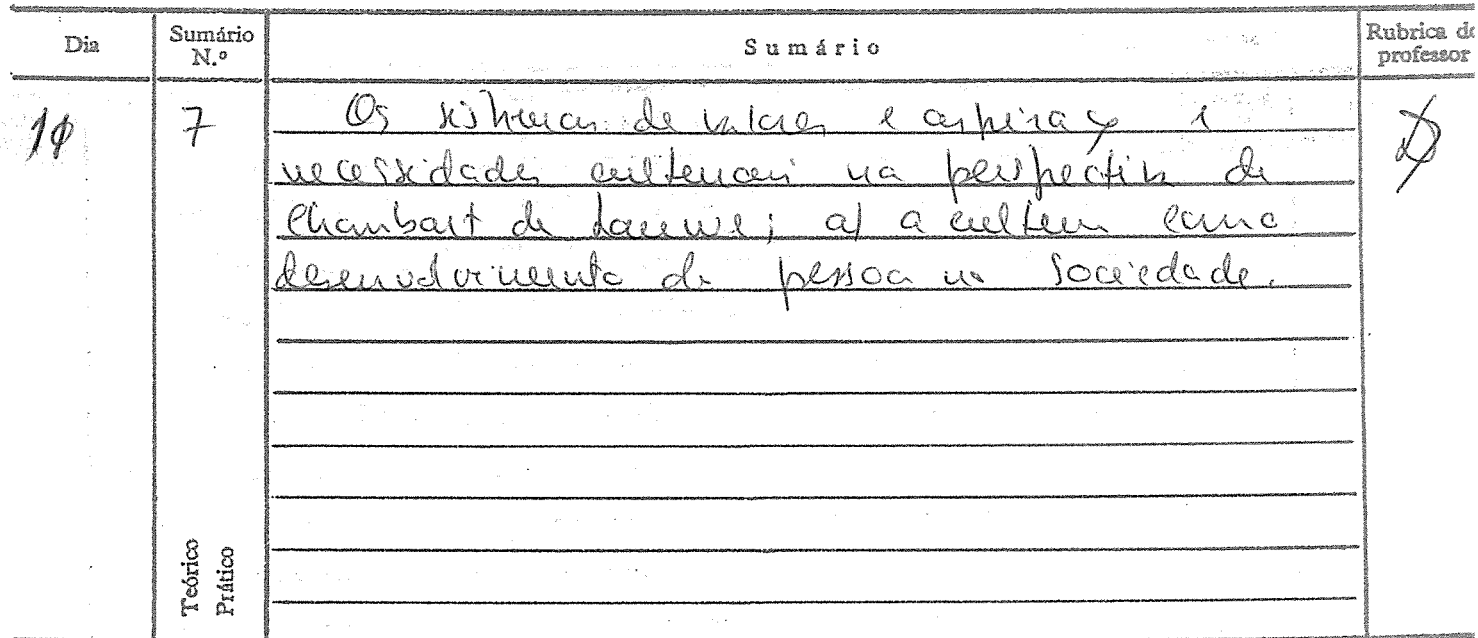 Dia Sumário N.º Sumário Rubrica do professor
10 7 Os sistemas de valores e aspirações e
necessidades culturais na perspectiva de
Chombart de Lauwe; a) a cultura como
desenvolvimento da pessoa na sociedade.
Teórico
Prático